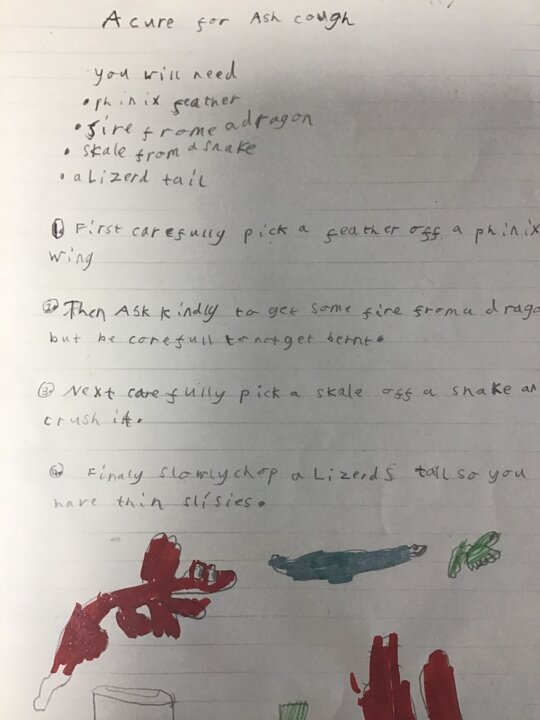 A cure for Ash cough
you will need
• phinix feather
• fire frome a dragon
• skale from a snake
• a Lizerd tail
1 First carefully pick a feather off a phinix
wing
2 Then Ask kindly to get some fire from a drago
but be carefull to not get bernt.
3 Next carefully pick a skale off a snake an
crush it.
4 Finaly slowly chop a Lizerds tail so you
have thin slisies.